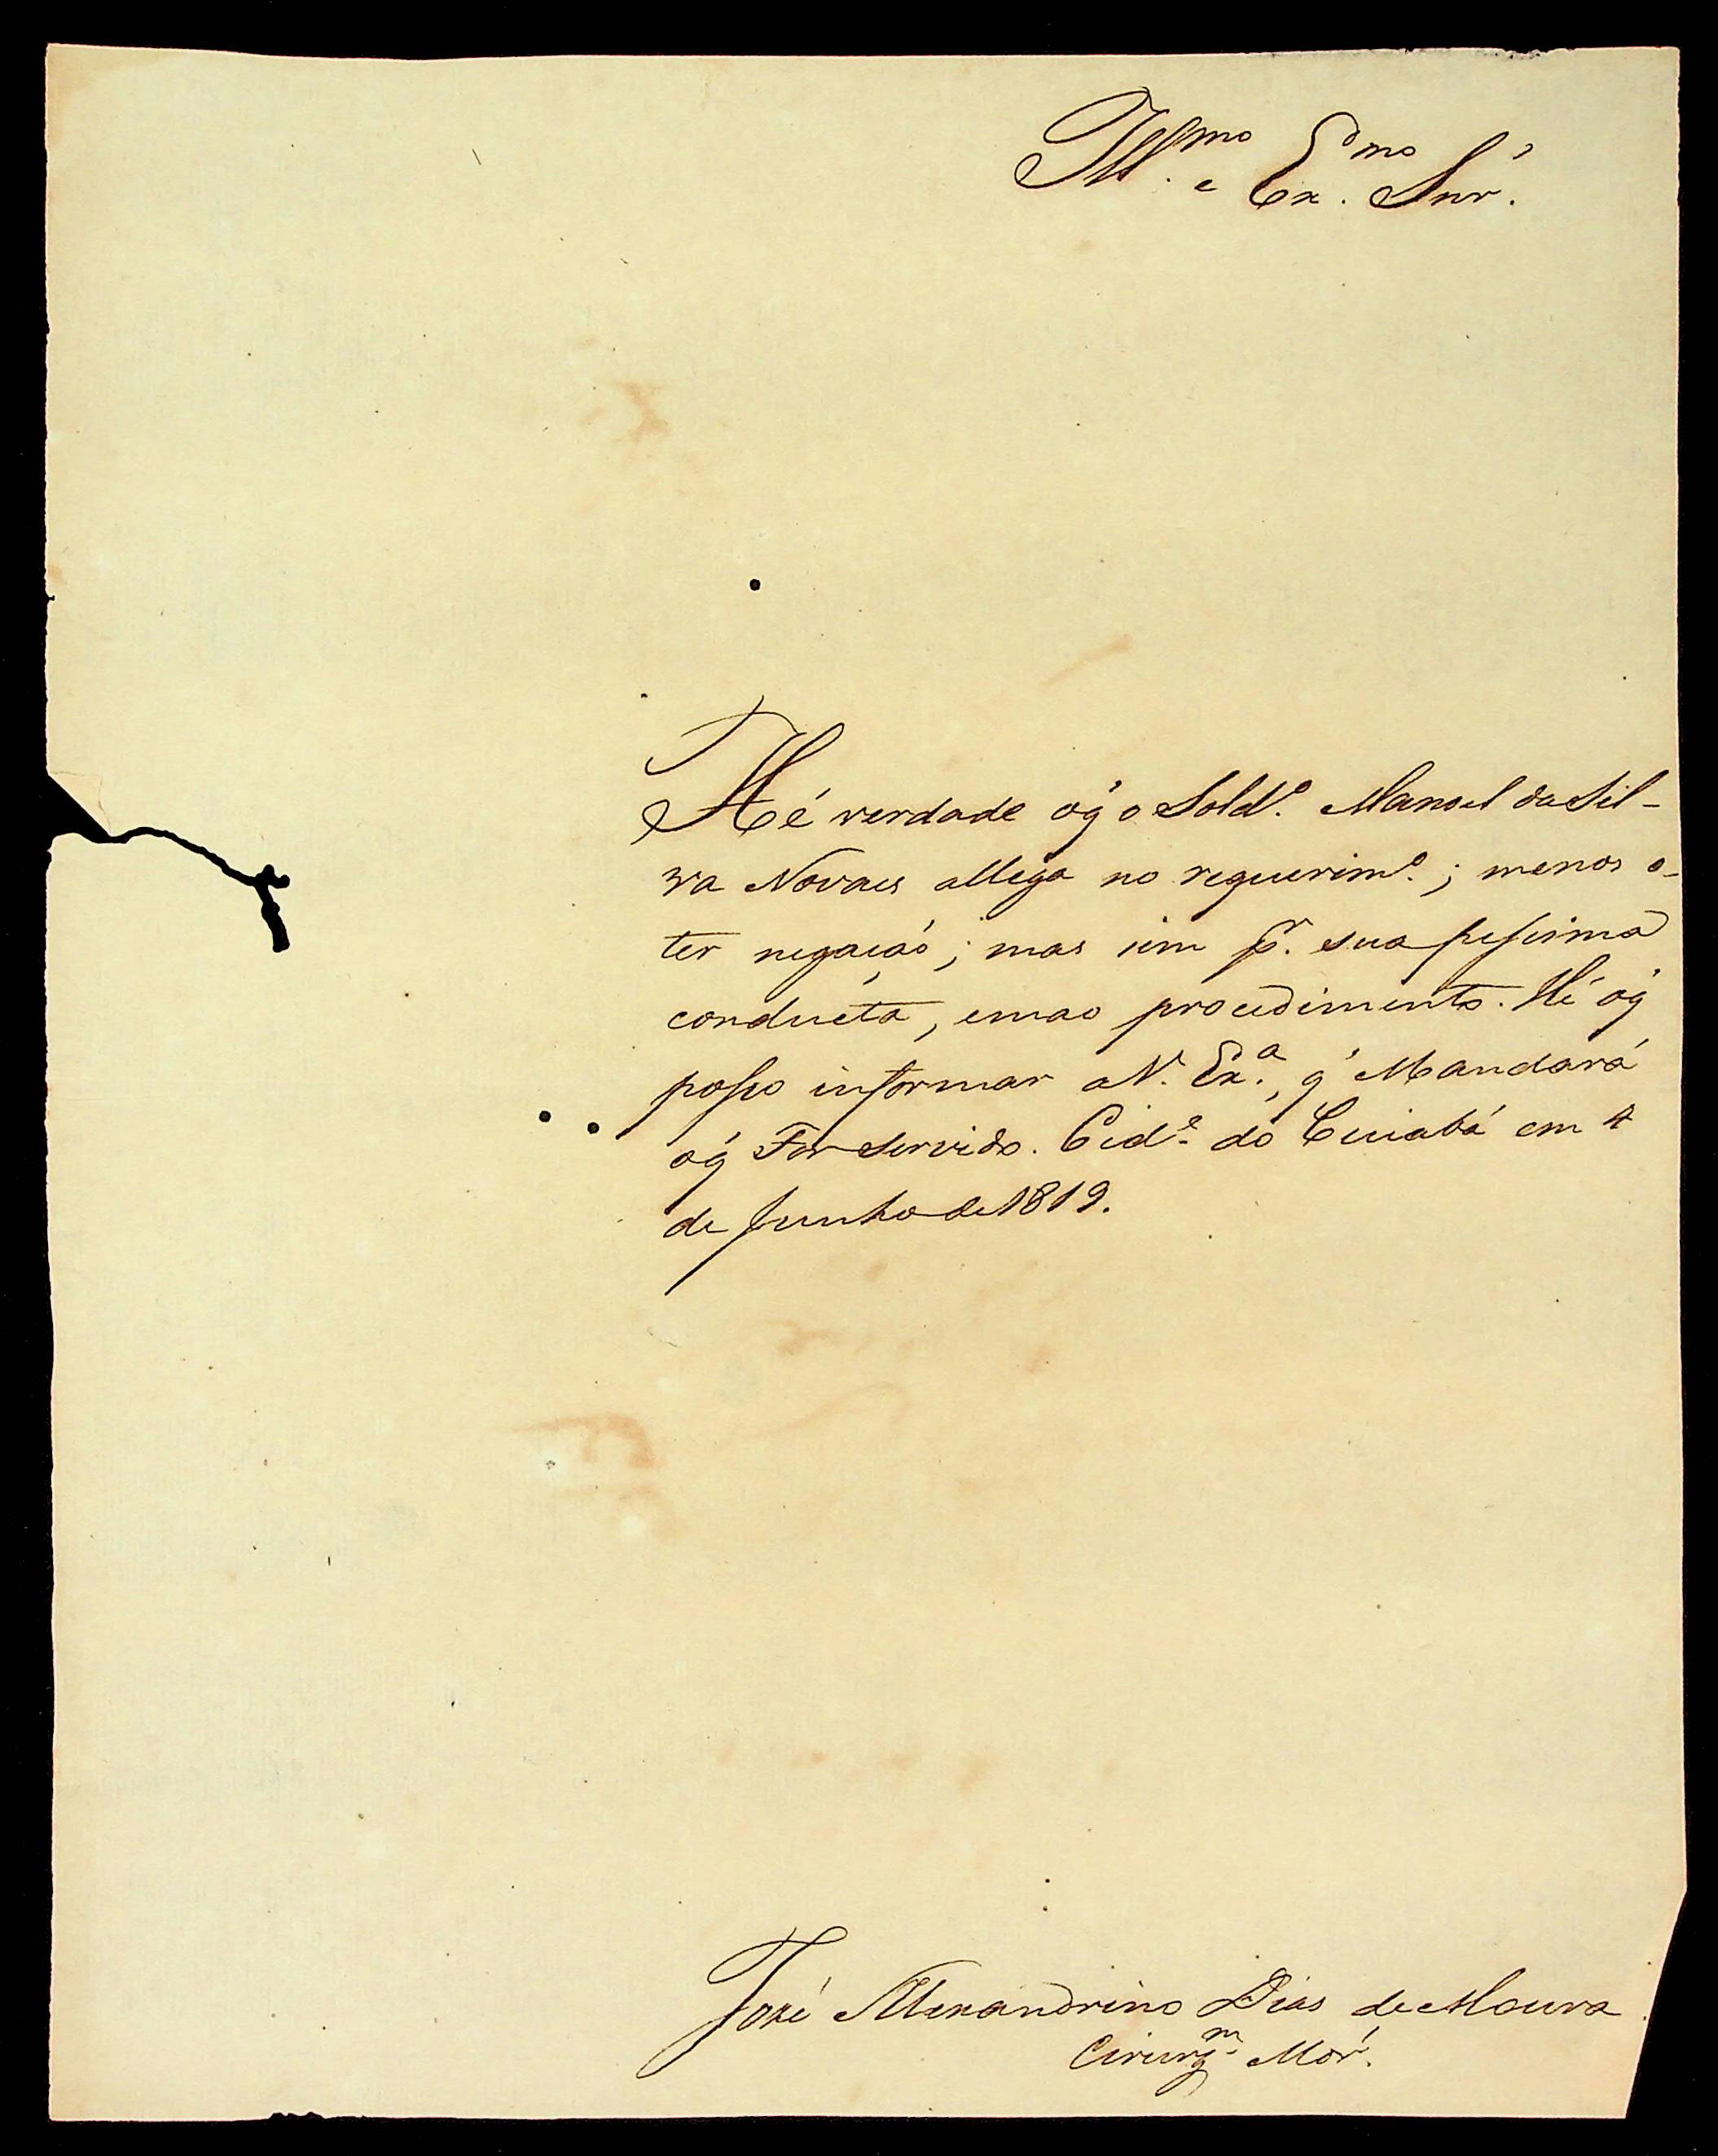 Ill.mo e Ex.mo Snr.
Hé verdade oq̃ o Sold.o Manoel da Sil-
va Novaes allega no requerim.o; menos o-
ter negação; mas sim p.r sua pessima
conducta, emao procedimento. Hé oq̃
posso informar aV. Ex.a, q̃ Mandará
oq̃ For Servido. Cid.e do Cuiabá em 4
de Junho de 1819.
José Alexandrino Dias de Moura
Cirurg.m Mór.